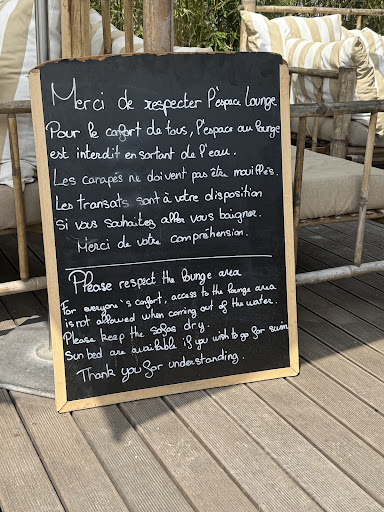 Merci de respecter l'espace lounge
Pour le confort de tous, l'espace au lounge
est interdit en sortant de l'eau.
Les canapés ne doivent pas être mouillés.
Les transats sont à votre disposition
Si vous souhaitez aller vous baigner.
Merci de votre compréhension.
Please respect the lounge area
For everyone's comfort, access to the lounge area
is not allowed when coming out of the water.
Please keep the sofas dry.
Sun bed are available if you wish to go for swim
Thank you for understanding.